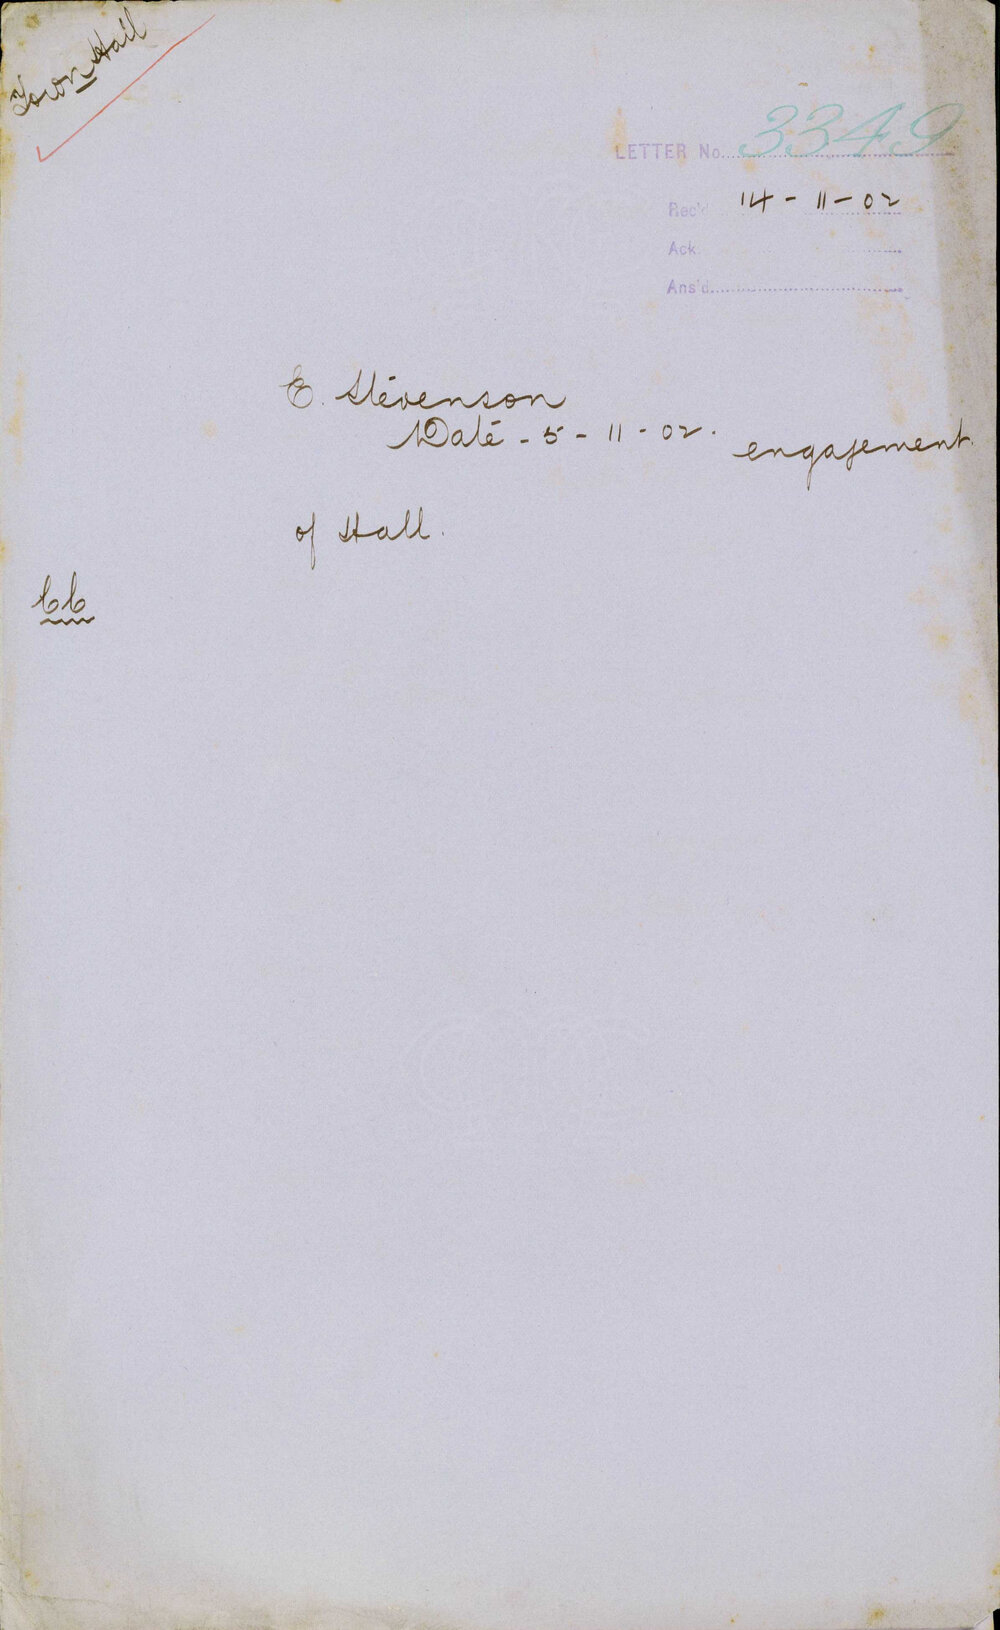 Town Hall
LETTER No. 3349
Rec'd 14-11-02
Ack.
Ans'd
E. Stevenson
Date - 5-11-02. engagement
of Hall.